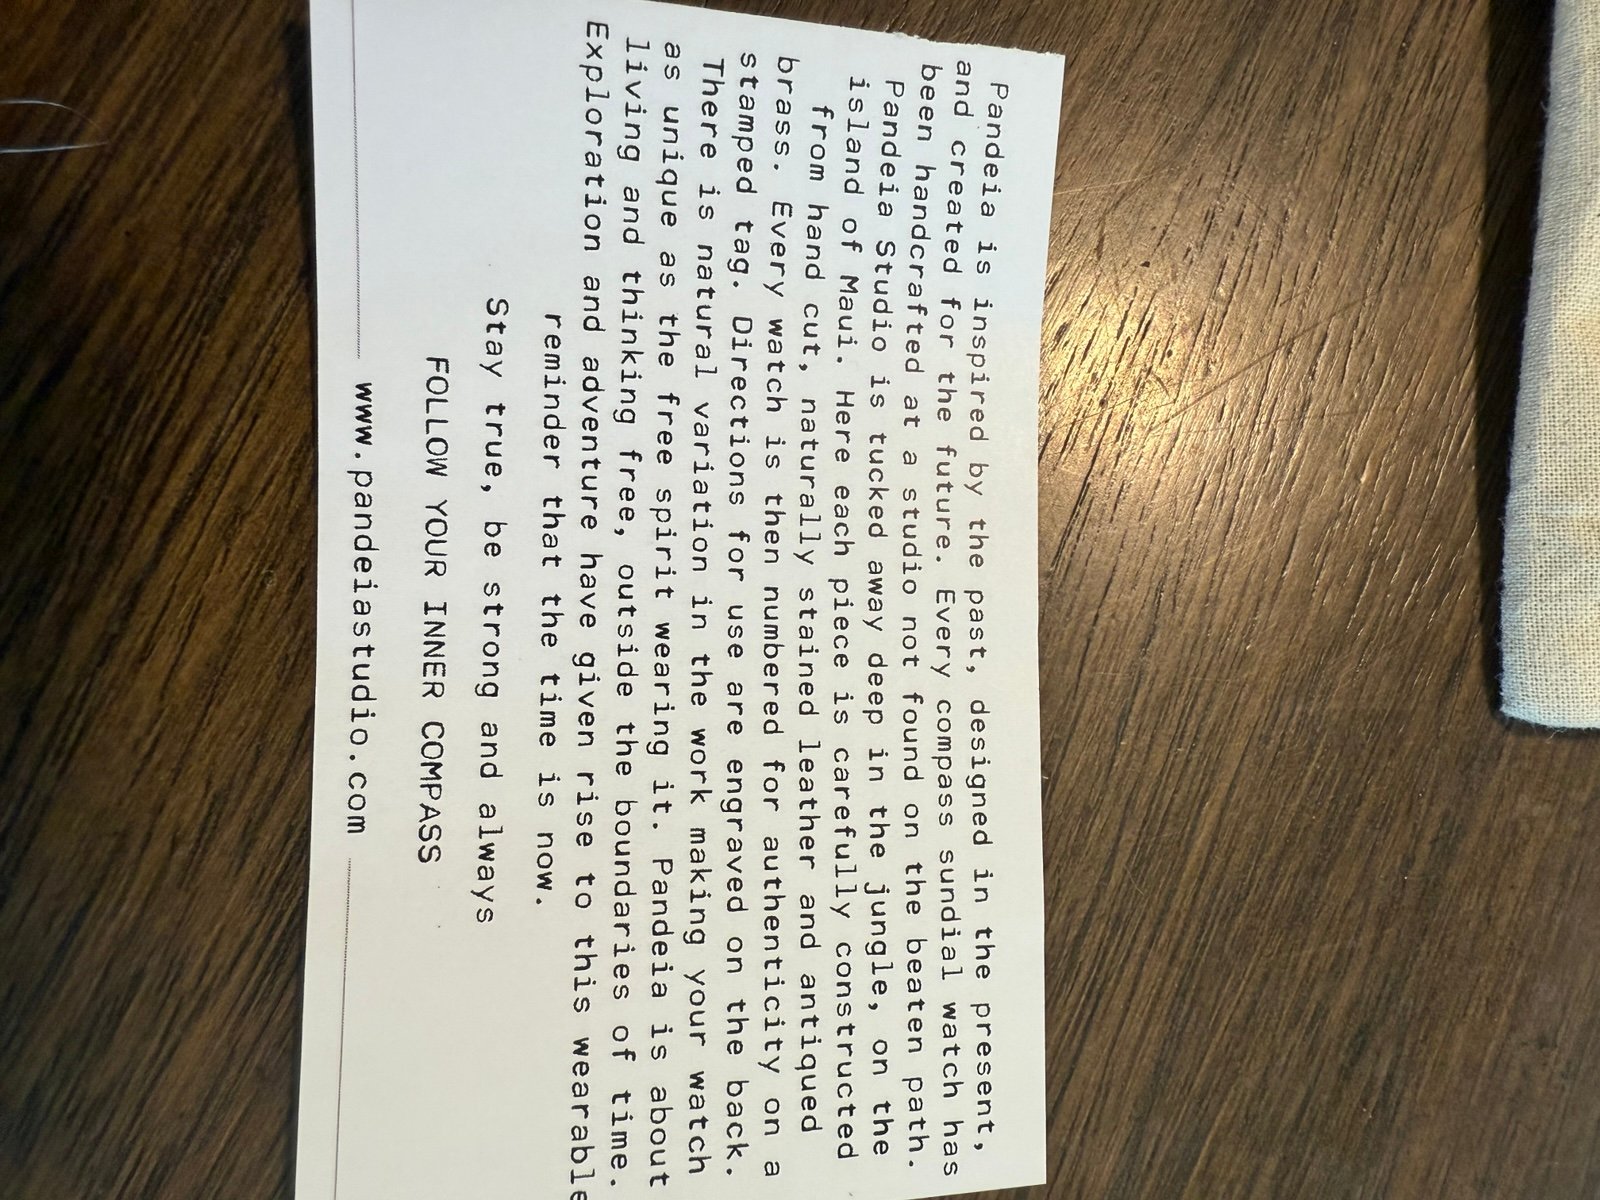 Pandeia is inspired by the past, designed in the present,
and created for the future. Every compass sundial watch has
been handcrafted at a studio not found on the beaten path.
Pandeia Studio is tucked away deep in the jungle, on the
island of Maui. Here each piece is carefully constructed
from hand cut, naturally stained leather and antiqued
brass. Every watch is then numbered for authenticity on a
stamped tag. Directions for use are engraved on the back.
There is natural variation in the work making your watch
as unique as the free spirit wearing it. Pandeia is about
living and thinking free, outside the boundaries of time.
Exploration and adventure have given rise to this wearable
reminder that the time is now.
Stay true, be strong and always
FOLLOW YOUR INNER COMPASS
www.pandeiastudio.com